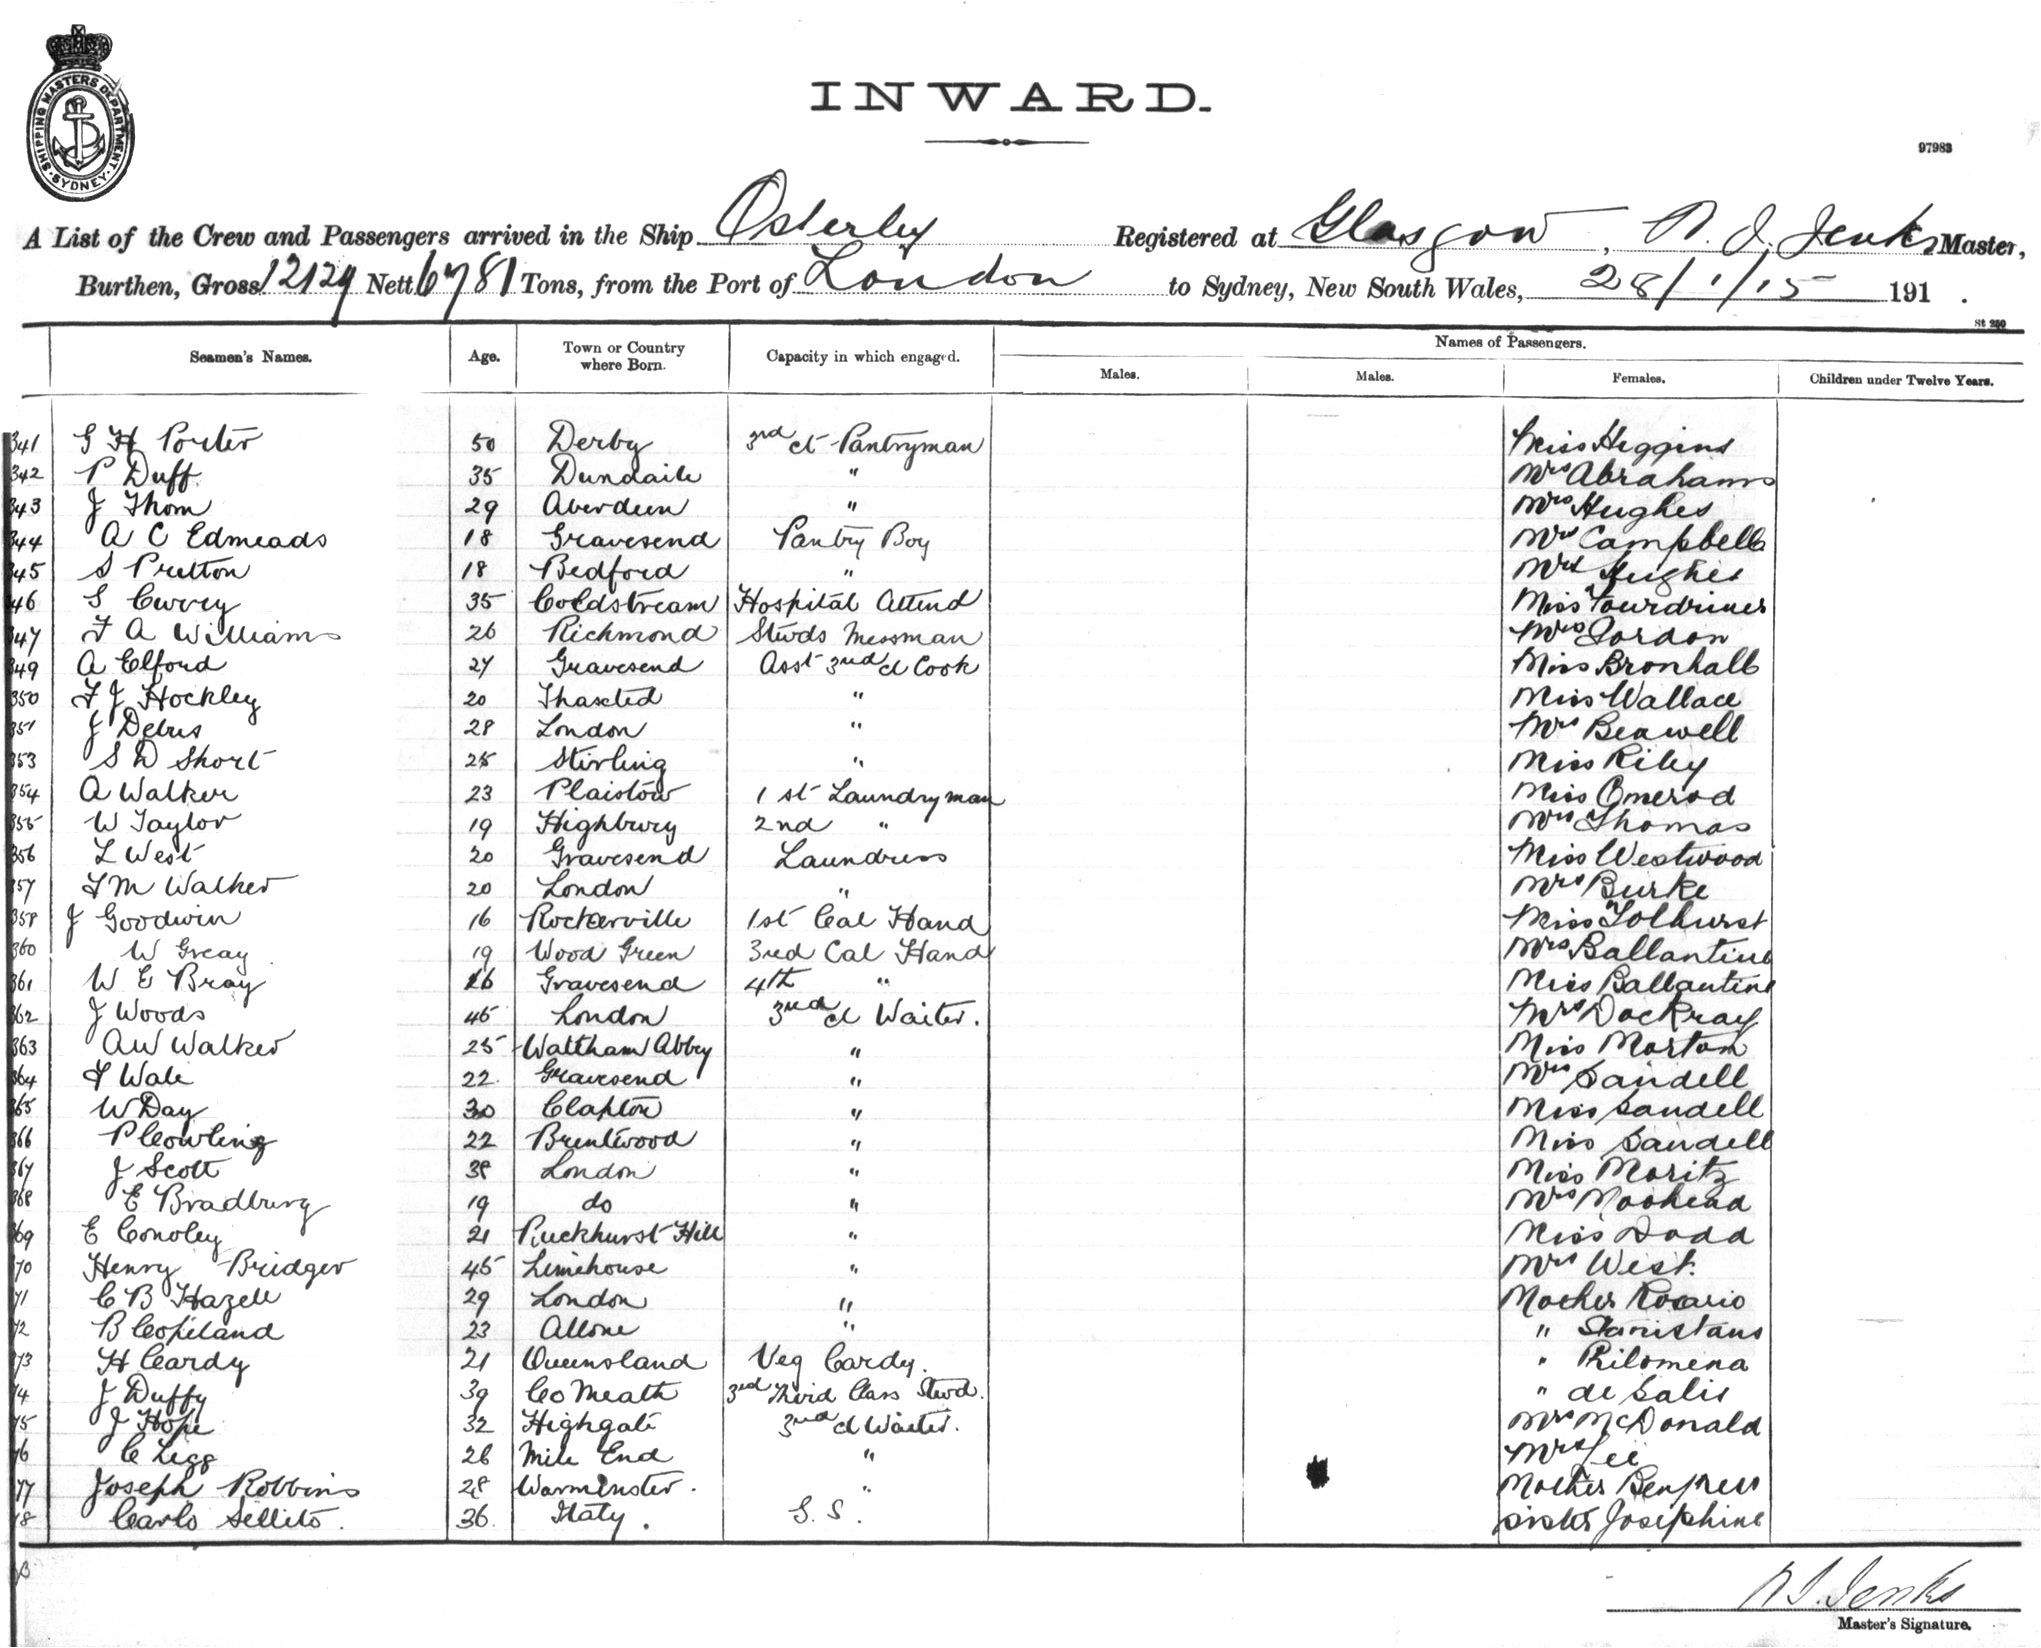 SHIPPING MASTERS DEPARTMENT SYDNEY
INWARD.
97983
A List of the Crew and Passengers arrived in the Ship Osterley Registered at Glasgow, A. J. Jenks Master,
Burthen, Gross 12129 Nett 6781 Tons, from the Port of London to Sydney, New South Wales, 28/1/15 191 .
St 250
Seamen's Names. Age. Town or Country where Born. Capacity in which engaged. Names of Passengers.
Males. Males. Females. Children under Twelve Years.
341 G H Porter 50 Derby 3rd cl Pantryman Miss Higgins
342 P Duff 35 Dundaile " Mrs Abrahams
343 J Thom 29 Aberdeen " Mrs Hughes
344 A C Edmeads 18 Gravesend Pantry Boy Mrs Campbell
345 S Pretton 18 Bedford " Mrs Hughes
346 S Currey 35 Coldstream Hospital Attend Miss Fourdrinier
347 F A Williams 26 Richmond Stwds Messman Mrs Gordon
349 A Elford 27 Gravesend Asst 3rd cl Cook Miss Bronhall
350 F J Hockley 20 Thaxted " Miss Wallace
351 J Debus 28 London " Mrs Beawell
353 S D Short 25 Stirling " Miss Riley
354 A Walker 23 Plaistow 1st Laundryman Miss Omerod
355 W Taylor 19 Highbury 2nd " Mrs Thomas
356 L West 20 Gravesend Laundress Miss Westwood
357 F M Walker 20 London " Mrs Burke
358 J Goodwin 16 Rockerville 1st Cal Hand Miss Tolhurst
360 W Greay 19 Wood Green 3rd Cal Hand Mrs Ballantine
361 W E Bray 16 Gravesend 4th " Miss Ballantine
362 J Woods 45 London 3rd cl Waiter. Mrs Dockray
363 A W Walker 25 Waltham Abbey " Miss Morton
364 F Wale 22 Gravesend " Mrs Sandell
365 W Day 30 Clapton " Miss Sandell
366 P Cowling 22 Brentwood " Miss Sandell
367 J Scott 38 London " Miss Moritz
368 E Bradbury 19 do " Mrs Moohead
369 E Conoley 21 Buckhurst Hill " Miss Dodd
70 Henry Bridger 45 Limehouse " Mrs West.
71 C B Hazell 29 London " Mother Rosario
72 B Copeland 23 Allone " " Stanistaus
73 H Cardy 21 Queensland Veg Cardy. " Philomena
74 J Duffy 39 Co Meath 3rd Third Class Stwd. " de Salis
75 J Hope 32 Highgate 3rd cl Waiter. Mrs McDonald
76 C Legg 26 Mile End " Mrs Lee
77 Joseph Robbins 28 Warminster. " Mother
18 Carlo Sellito. 36. Italy. G. S. Sister Josephine
A J Jenks
Master's Signature.